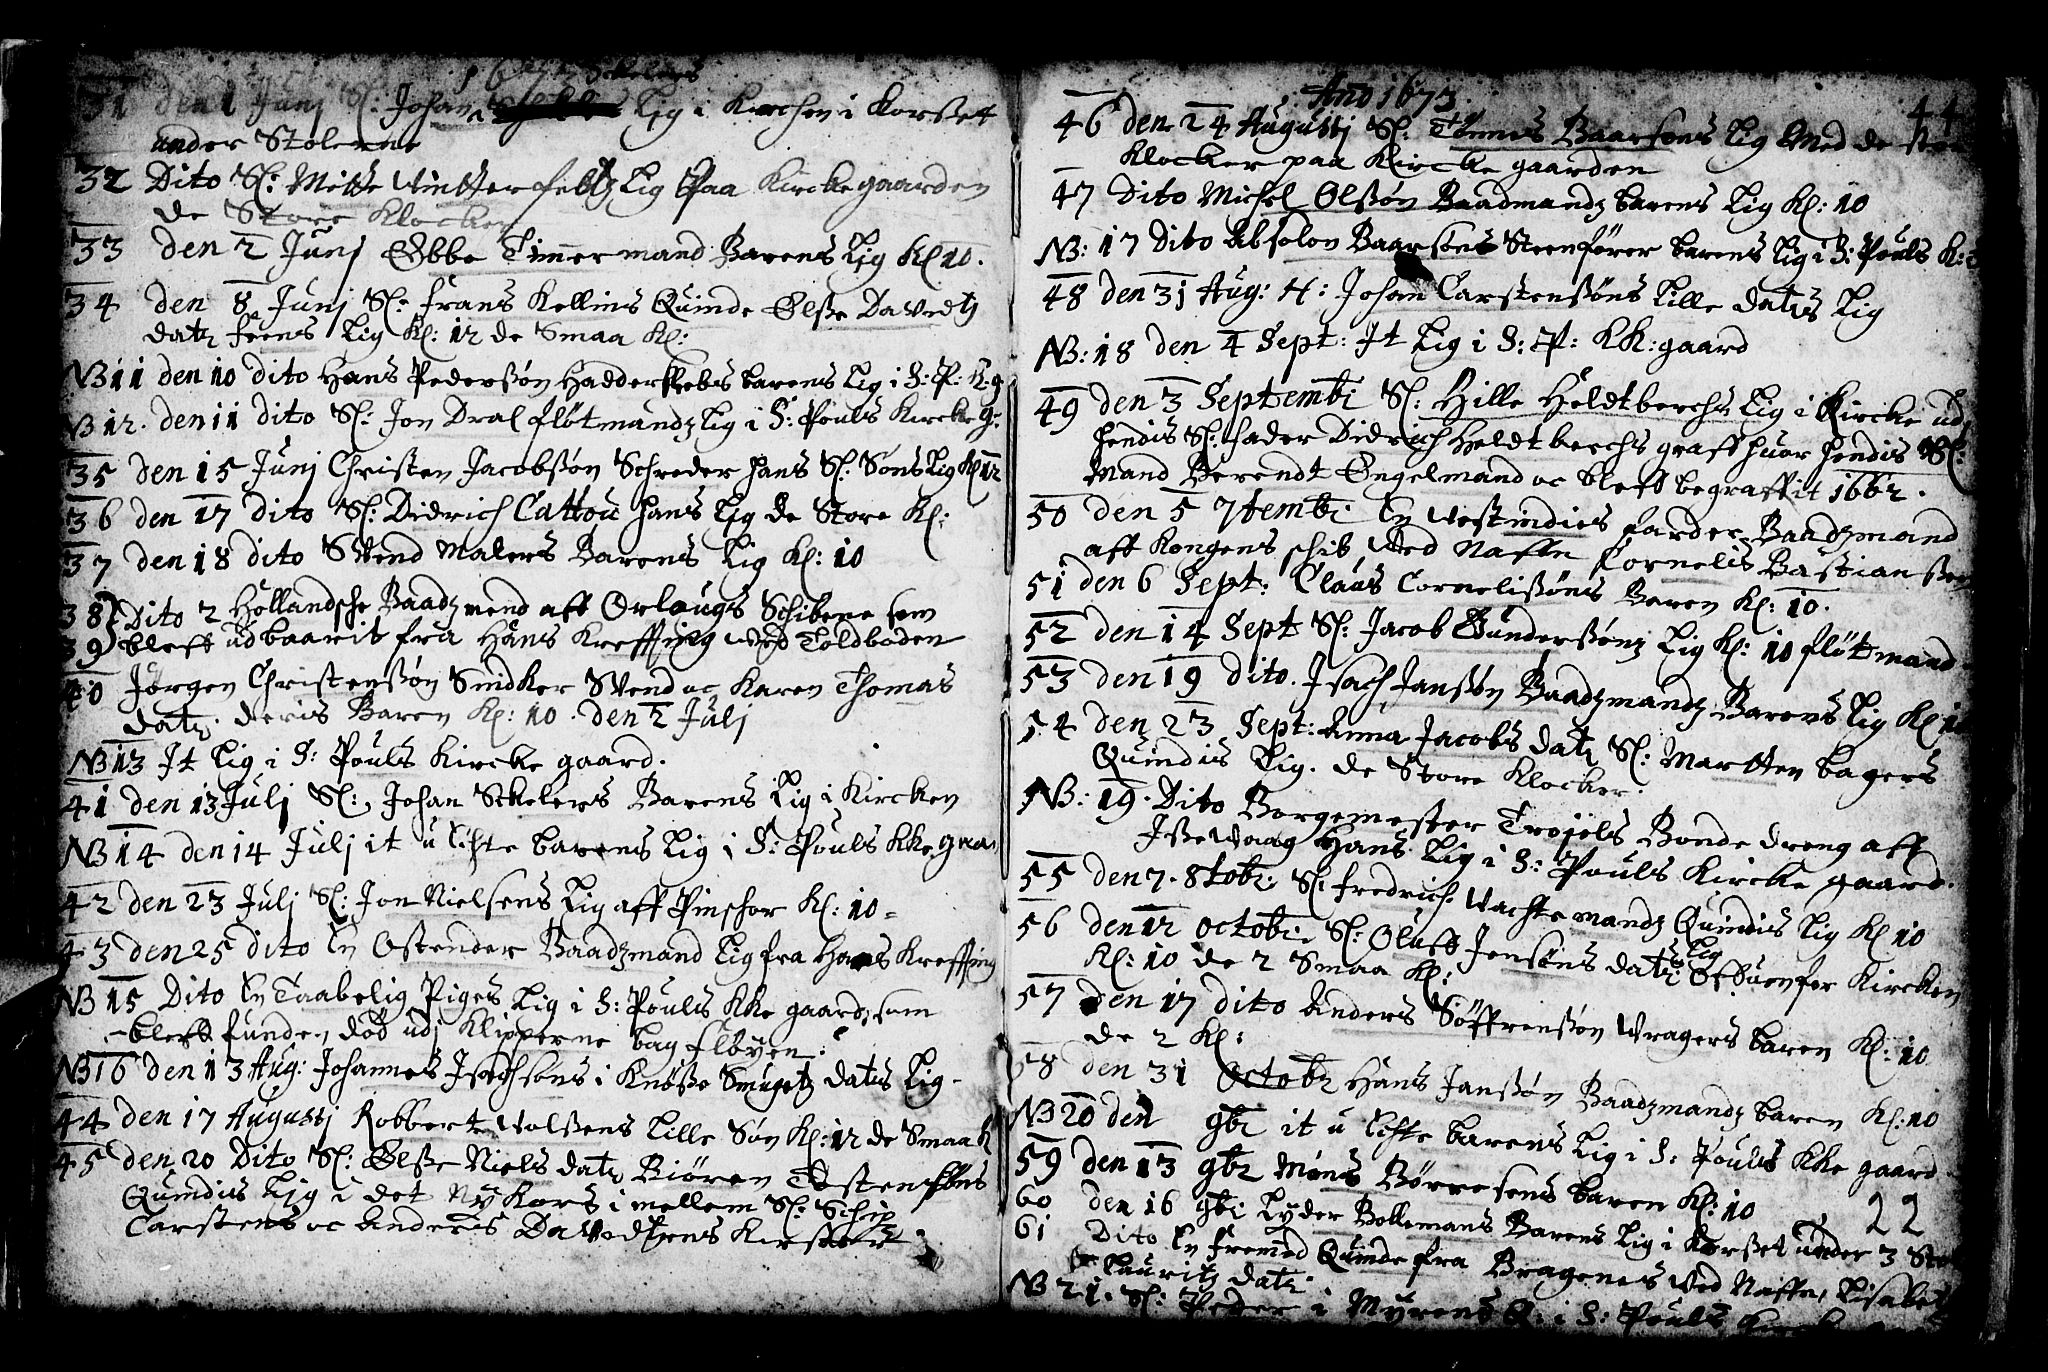 1673 Skelers
31 den 1 Junj Sl: Johan Lig i Kirchen i Korsset
under Stolerne
32 Dito Sl: Mette Wintterfeltz Lig Paa Kirckegaarden
de Store Klocker
33 den 2 Junj Ebbe Timmermand Barens Lig Kl 10.
34 den 8 Junj Sl: Frans Kellins Quinde Elsse Davedtz
datz feens Lig Kl: 12 de Smaa Kl:
NB 11 den 10 dito Hans Pederssøn Hadderslebs barens Lig i S: P: K: g
NB 12. den 11 dito Sl: Jon Dral fløtmandz Lig i S: Pouls Kircke g:
35 den 15 Junj Christen Jacobssøn Schreder hans Sl: Søns Lig Kl 12
36 den 17 dito Sl: Didrich Cattou hans Lig de Store Kl:
37 den 18 dito Svend Malers Barens Lig Kl: 10
38 Dito 2 Hollandsche Baadzmend aff Orlougs Schibene som
39 bleff udbaarit fra Hans Kreffting ved Toldboden
40 Jørgen Christenssøn Snidker Svend oc Karen Thomas
datz. deris Baren Kl: 10. den 2 Julj
NB 13 It Lig i S: Pouls Kircke gaard.
41 den 13 Julj Sl: Johan Skelers Barens Lig i Kircken
NB 14 den 14 Julj it u Echte barens Lig i S: Pouls KKe gaa
42 den 23 Julj Sl: Jon Nielsens Lig aff Pinschor Kl: 10
43 den 25 dito En Ostender Baadzmand Lig fra Hans Kreffting
NB 15 Dito En Taabelig Piges Lig i S: Pouls KKe gaard, som
bleff funden død udj Klipperne bag Fløyen
NB 16 den 13 Aug: Johannes Isachsons i Knøsse Smugetz datis Lig
44 den 17 Augustj Robbert Wolssens Lille Søn Kl: 12 de Smaa K
45 den 20 Dito Sl: Elsse Niels datz Biören Tostensøns
Quindis Lig i det Ny Kors i mellem Sl: Schip
Carstens oc Anders Davedtzens Kirster
Ano 1673. 44
46 den 24 Augustj Sl: Tønnes Baarsøns Lig Med de stor
Klocker paa Kircke gaarden
47 Dito Michel Olssøn Baadmandz barens Lig Kl: 10
NB: 17 Dito Absolon Baarsøns Steenfører barens Lig i S: Pouls K:
48 den 31 Aug: H: Johan Carstenssøns Lille datis Lig
NB: 18 den 4 Sept: It Lig i S: P: KK: gaard
49 den 3 Septembr Sl: Hille Heldtberchs Lig i Kircke ud
hendis Sl: fader Didrich Heldtberchs graff huor hendis Sl:
Mand Berendt Engelmand oc bleff begraffit 1662.
50 den 5 7tembr En Westindies farder Baadzmand
aff Kongens schib Wed Naffn Cornelis Bastianssen
51 den 6 Sept: Claus Cornelissøns Baren Kl: 10.
52 den 14 Sept Sl: Jacob Gunderssønz Lig Kl: 10 fløtmand
53 den 19 dito. Isach Janssøn Baadzmandz Barens Lig Kl 10
54 den 23 Sept: Anna Jacobs datz Sl: Martten bagers
Quindis Lig. de Store Klocker.
NB: 19. Dito Borgemester Trojels Bonde dreng aff
Issevaag Hans Lig i S: Pouls Kircke gaard.
55 den 7. 8tobr: Sl: Fredrich Wachtemandz Quindis Lig Kl 10
56 den 12 octobr. Sl: Oluff Jensøns datis Lig Offuenfor Kircken
Kl: 10 de 2 Smaa Kl:
57 den 17 dito Anders Søffrenssøn Wragers baren Kl: 10
de 2 Kl:
58 den 31 Octobr Hans Janssøn Baadzmandz baren Kl: 10
NB 20 den 9br it u Echte barens Lig i S: Pouls KKe gaard
59 den 13 9br Møns Børresens baren Kl: 10
60 den 16 9br Lyder Bollemans Barens Lig i Korsset under 3 Sto 22
61 Dito En fremed Quinde fra Bragenes Ved Naffn, Lisabet
Lauritz datz.
NB 21. Sl: Peder i Myrens Q: i S: Pouls